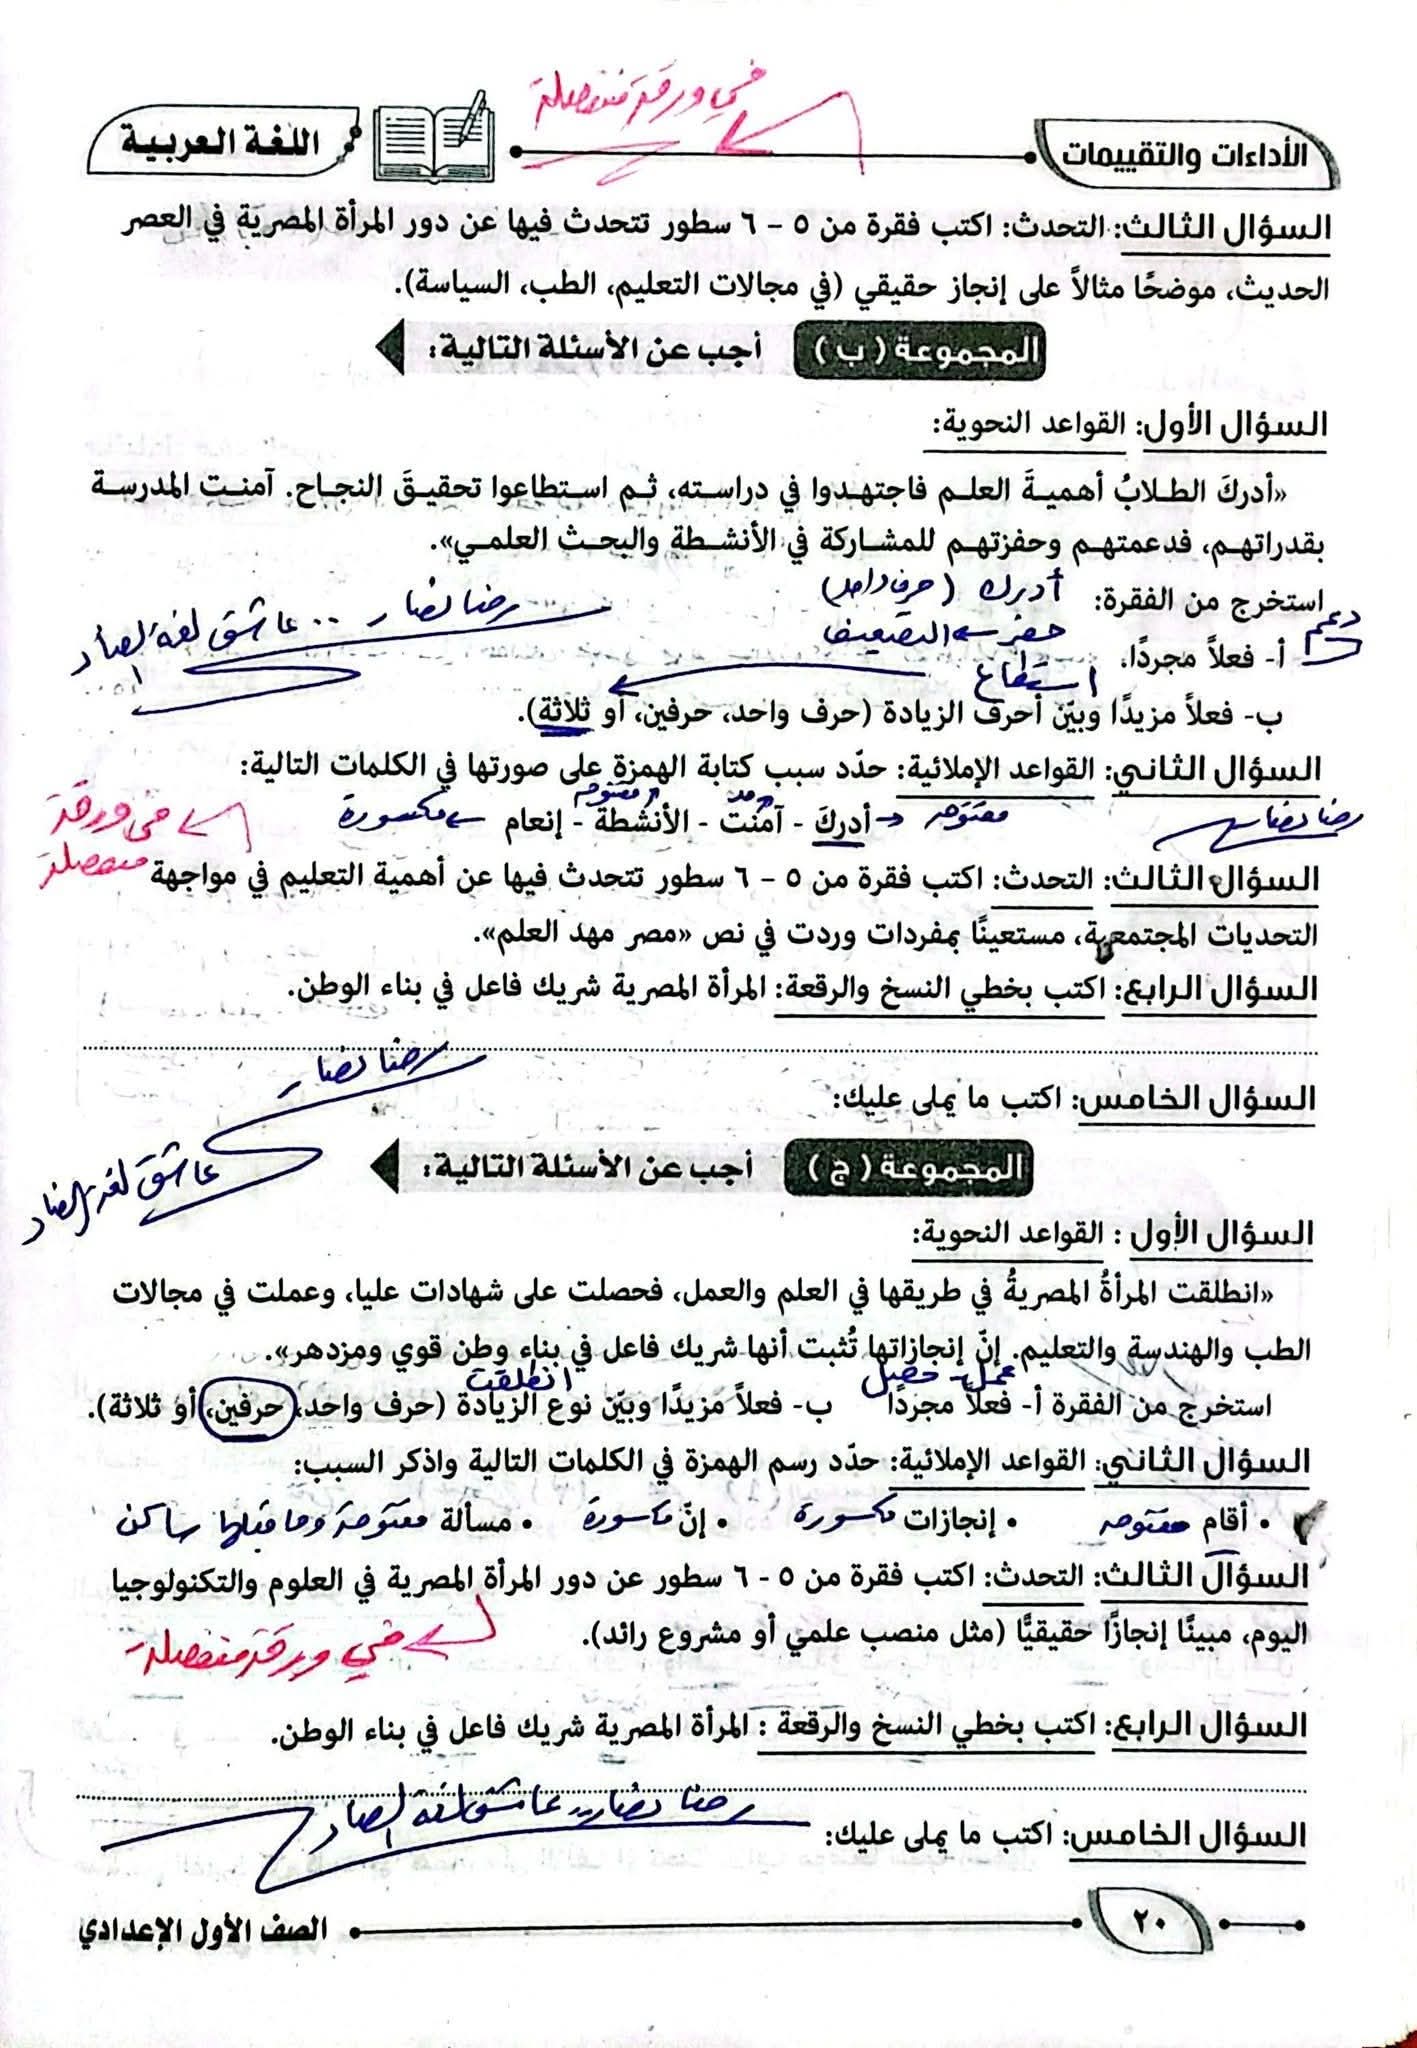 في ورقة منفصلة
الأداءات والتقييمات
اللغة العربية
السؤال الثالث: التحدث: اكتب فقرة من ٥ - ٦ سطور تتحدث فيها عن دور المرأة المصرية في العصر
الحديث، موضحًا مثالاً على إنجاز حقيقي (في مجالات التعليم، الطب، السياسة).
المجموعة (ب) أجب عن الأسئلة التالية:
السؤال الأول: القواعد النحوية:
«أدركَ الطلابُ أهميةَ العلم فاجتهدوا في دراسته، ثم استطاعوا تحقيقَ النجاح. آمنت المدرسة
بقدراتهم، فدعمتهم وحفزتهم للمشاركة في الأنشطة والبحث العلمي».
استخرج من الفقرة: أدرك (حرف واحد)
رضا نصار .. عاشق لغة الضاد
حفز ← التضعيف
أ- فعلاً مجردًا، دعم
استطاع
ب- فعلاً مزيدًا وبيّن أحرف الزيادة (حرف واحد، حرفين، أو ثلاثة).
السؤال الثاني: القواعد الإملائية: حدّد سبب كتابة الهمزة على صورتها في الكلمات التالية:
مفتوحة مد مفتوحة
رضا نصار
مفتوحة ← أدركَ - آمنتْ - الأنشطة - إنعام ← مكسورة
في ورقة
منفصلة
السؤال الثالث: التحدث: اكتب فقرة من ٥ - ٦ سطور تتحدث فيها عن أهمية التعليم في مواجهة
التحديات المجتمعية، مستعينًا بمفردات وردت في نص «مصر مهد العلم».
السؤال الرابع: اكتب بخطي النسخ والرقعة: المرأة المصرية شريك فاعل في بناء الوطن.
رضا نصار
السؤال الخامس: اكتب ما يملى عليك:
عاشق لغة الضاد
المجموعة (ج) أجب عن الأسئلة التالية:
السؤال الأول : القواعد النحوية:
«انطلقت المرأةُ المصريةُ في طريقها في العلم والعمل، فحصلت على شهادات عليا، وعملت في مجالات
الطب والهندسة والتعليم. إنّ إنجازاتها تُثبت أنها شريك فاعل في بناء وطن قوي ومزدهر».
عمل - حصل انطلقت
استخرج من الفقرة أ- فعلاً مجردًا ب- فعلاً مزيدًا وبيّن نوع الزيادة (حرف واحد، حرفين، أو ثلاثة).
السؤال الثاني: القواعد الإملائية: حدّد رسم الهمزة في الكلمات التالية واذكر السبب:
• أقام مفتوحة • إنجازات مكسورة • إنّ مكسورة • مسألة مفتوحة وما قبلها ساكن
السؤال الثالث: التحدث: اكتب فقرة من ٥ - ٦ سطور عن دور المرأة المصرية في العلوم والتكنولوجيا
اليوم، مبينًا إنجازًا حقيقيًّا (مثل منصب علمي أو مشروع رائد).
في ورقة منفصلة
السؤال الرابع: اكتب بخطي النسخ والرقعة : المرأة المصرية شريك فاعل في بناء الوطن.
رضا نصار .. عاشق لغة الضاد
السؤال الخامس: اكتب ما يملى عليك:
٢٠
الصف الأول الإعدادي